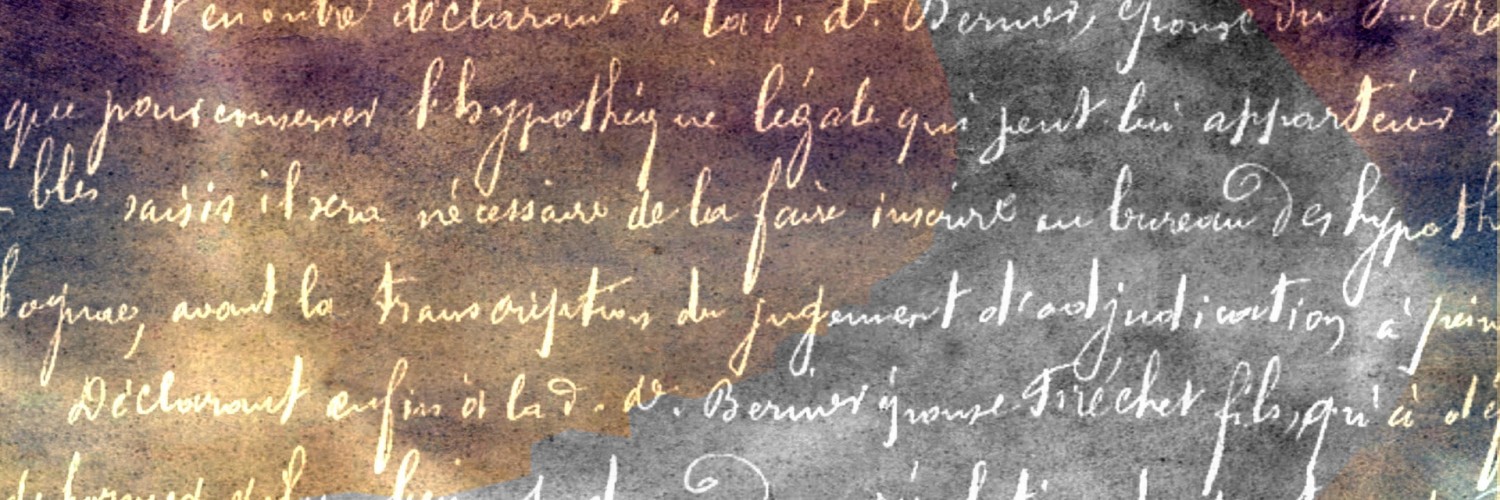 Et en outre déclarant à la d. de. Bernier, épouse du
que pour conserver l'hypothèque légale qui peut lui appartenir
bles saisis il sera nécessaire de la faire inscrire au bureau des hypoth
avant la transcription du jugement d'adjudication à pein
Déclarant enfin à la d. de. Bernier épouse Firéchet fils, qu'à